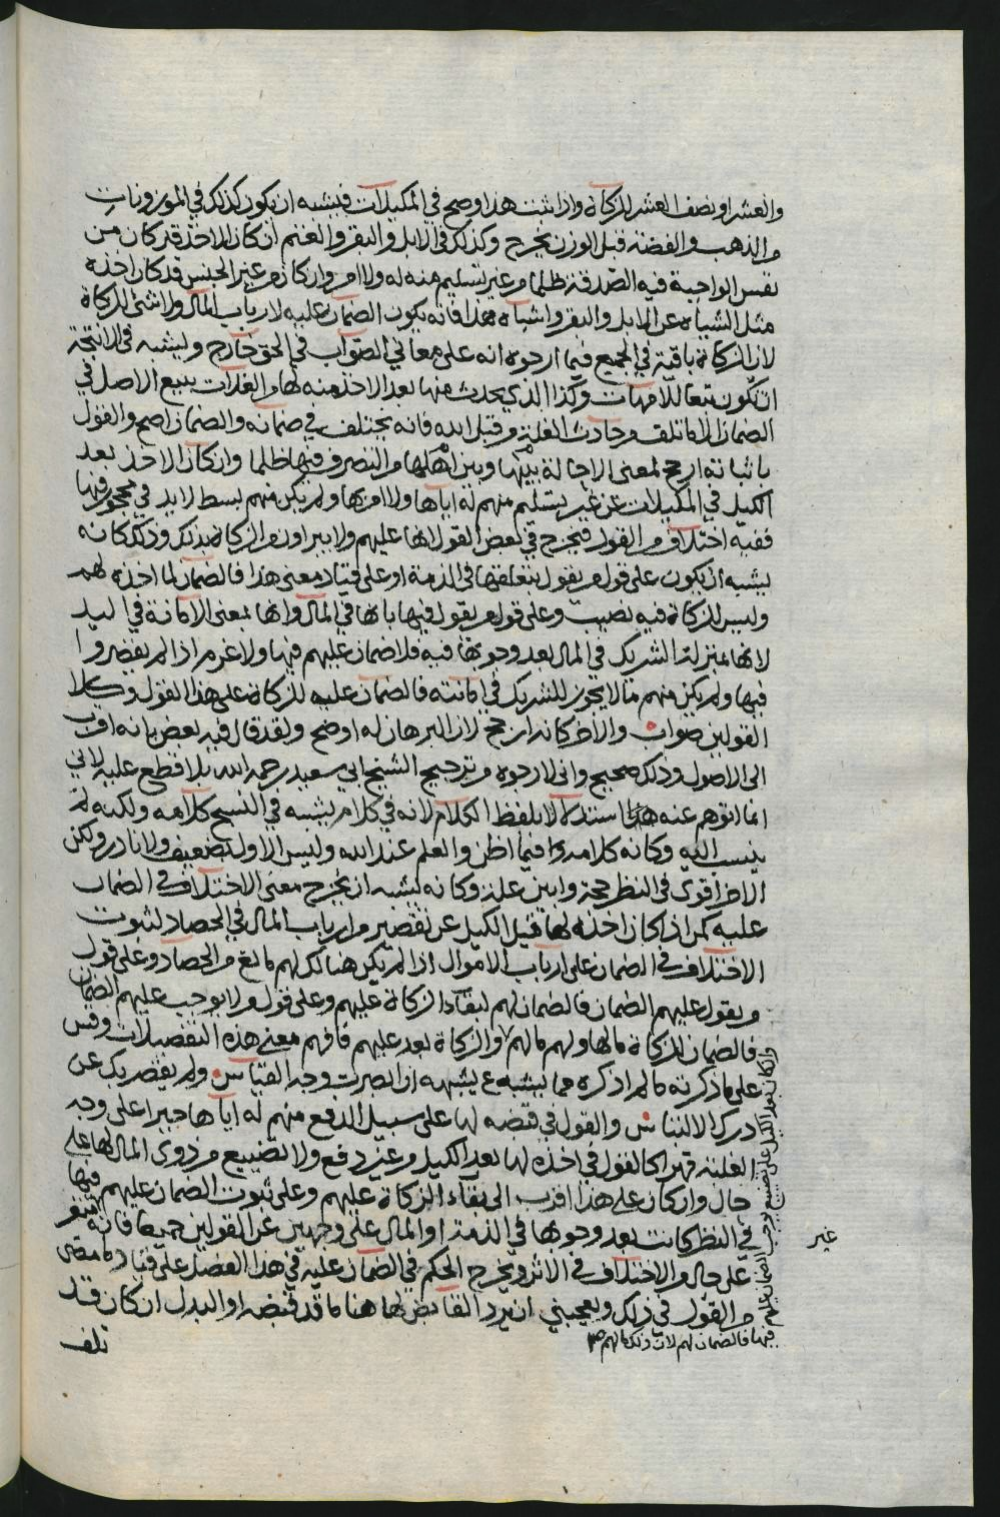 والعشر او نصف العشر للزكاة واذا ثبت هذا وصح في المكيلات فيشبه ان يكون كذلك في الموزونات
من الذهب والفضة قبل الوزن يخرج وكذلك في الابل والبقر والغنم ان كان الاخذ قد كان من
نفس الواجبة فيه الصدقة ظلما من غير تسليم منه له ولا امر وان كان من غير الجنس قد كان اخذه
مثل الشياه عن الابل والبقر واشباه هذا فانه يكون الضمان عليه لارباب المال ولا شئ للزكاة
لان الزكاة باقية في الجميع فيما ارجوه انه على معاني الصواب في الحق خارج ويشبه في الانتجة
ان تكون تبعا للامهات وكذا الذي يحدث منها بعد الاخذ منه لها والغلات يتبع الاصل في
الضمان الا ما تلف من حادث الغلة من قبل الله فانه يختلف في ضمانه والضمان اصح والقول
باثباته ارجح لمعنى الاحالة بينها وبين اهلها والتصرف فيها ظلما وان كان الاخذ بعد
الكيل في المكيلات عن غير تسليم منهم له اياها ولا امر بها ولم يكن منهم بسط لايد في محجور فيها
ففيه اختلاف من القول فيخرج في بعض القول انها عليهم ولا يبراون من الزكاة بذلك وذلك كانه
يشبه ان يكون على قول من يقول بتعلقها في الذمة او على قياد معنى هذا فالضمان لما اخذه لهم
وليس للزكاة فيه نصيب وعلى قول من يقول فيها بانها في المال وانها بمعنى الامانة في اليد
لانها منزلة الشريك في المال بعد وجوبها فيه فلا ضمان عليهم فيها ولا غرم اذا لم يقصروا
فيها ولم يكن منهم ما لا يجوز للشريك في امانته فالضمان عليه للزكاة على هذا القول وكلا
القولين صواب والاخر كانه ارجح لان البرهان له اوضح ولقد قال فيه بعض بانه اقرب
الى الاصول وذلك صحيح واني لارجوه من ترجيح الشيخ ابي سعيد رحمه الله بلا قطع عليه لاني
انما اتوهم عنه هذا استدلالا بلفظ الكلام لانه في كلام يشبه في النسج كلامه ولكنه لم
ينسب اليه وكانه كلامه فيما اظن والعلم عند الله وليس الاول بضعيف ولا نادر ولكن
الاخر اقوى في النظر حجة وابين علة وكانه يشبه ان يخرج معنى الاختلاف في الضمان
عليه لمن اذا كان اخذه لها قبل الكيل عن تقصير من ارباب المال في الحصاد لثبوت
الاختلاف في الضمان على ارباب الاموال اذا لم يكن هنالك لهم مانع من الحصاد وعلى قول
من يقول عليهم الضمان فالضمان لهم لبقاء الزكاة عليهم وعلى قول من لا يوجب عليهم الضمان
فالضمان للزكاة مالها ولهم مالهم والزكاة بعد عليهم فافهم معنى هذه التفصيلات وقس
على ما ذكرته ما لم اذكره مما يشبه ع يشبهه ان ابصرت وجه القياس ولم يقصر بك عن
درك الالتباس والقول في قبضه لها على سبيل الدفع منهم له اياها جبرا على وجه
الغلبة قهرا كالقول في اخذه لها بعد الكيل من غير دفع ولا تضييع من ذوى المال لها على
حال وان كان على هذا اقرب الى بقاء الزكاة عليهم وعلى ثبوت الضمان عليهم فيها
في النظر كانت بعد وجوبها في الذمة او المال على وجهين عن القولين جميعا فانه متفر
على حال والاختلاف في الاثر ويخرج الحكم في الضمان عليه في هذا الفصل على قياد ما مضى
من القول في ذلك ويعجبني ان يرد القابض لها هنا ما قد قبضه او البدل ان كان قد
تلف
وان كان بعد الكيل على تضييع يوجب الضمان عليهم
فيها فالضمان لهم لان ذلك مالهم صح
غير